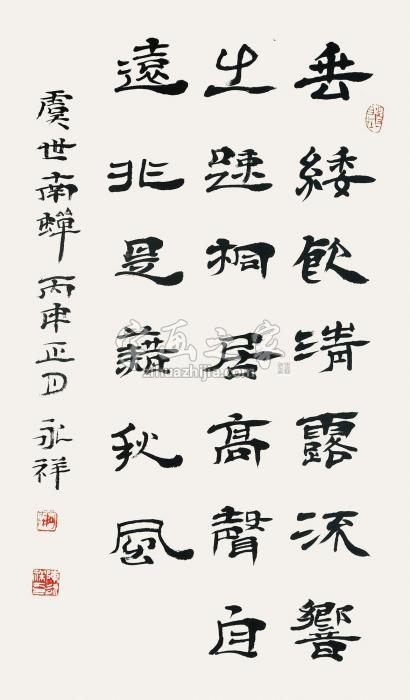 垂緌飲清露流響
出疎桐居高聲自
遠非是藉秋風
虞世南蟬 丙申正月 永祥
字画之家
zihuazhijia.com